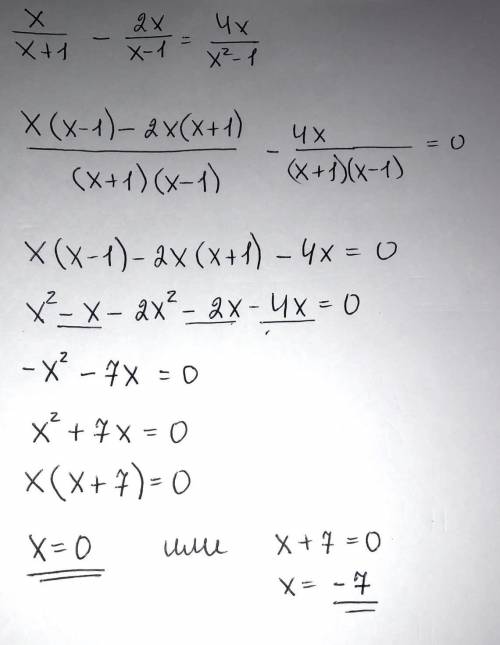 x/(x+1) - 2x/(x-1) = 4x/(x²-1)
(x(x-1) - 2x(x+1))/((x+1)(x-1)) - 4x/((x+1)(x-1)) = 0
x(x-1) - 2x(x+1) - 4x = 0
x² - x - 2x² - 2x - 4x = 0
-x² - 7x = 0
x² + 7x = 0
x(x+7) = 0
x = 0 или x + 7 = 0
x = -7